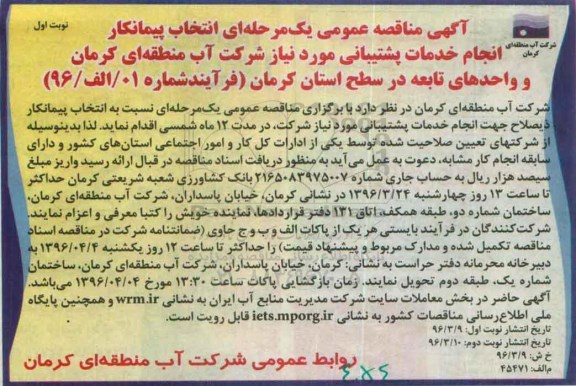 نوبت اول
شرکت آب منطقه‌ای
کرمان
آگهی مناقصه عمومی یک‌مرحله‌ای انتخاب پیمانکار
انجام خدمات پشتیبانی مورد نیاز شرکت آب منطقه‌ای کرمان
و واحدهای تابعه در سطح استان کرمان (فرآیندشماره ۰۱/الف/۹۶)
شرکت آب منطقه‌ای کرمان در نظر دارد با برگزاری مناقصه عمومی یک‌مرحله‌ای نسبت به انتخاب پیمانکار
ذیصلاح جهت انجام خدمات پشتیبانی مورد نیاز شرکت، در مدت ۱۲ ماه شمسی اقدام نماید. لذا بدینوسیله
از شرکتهای تعیین صلاحیت شده توسط یکی از ادارات کل کار و امور اجتماعی استان‌های کشور و دارای
سابقه انجام کار مشابه، دعوت به عمل می‌آید به منظور دریافت اسناد مناقصه در قبال ارائه رسید واریز مبلغ
سیصد هزار ریال به حساب جاری شماره ۲۱۶۵۰۸۳۹۷۵۰۰۷ بانک کشاورزی شعبه شریعتی کرمان حداکثر
تا ساعت ۱۳ روز چهارشنبه ۱۳۹۶/۳/۲۴ در نشانی کرمان، خیابان پاسداران، شرکت آب منطقه‌ای کرمان،
ساختمان شماره دو، طبقه همکف، اتاق ۱۳۱ دفتر قراردادها، نماینده خویش را کتبا معرفی و اعزام نمایند.
شرکت‌کنندگان در فرآیند بایستی هر یک از پاکات الف و ب و ج حاوی (ضمانتنامه شرکت در مناقصه اسناد
مناقصه تکمیل شده و مدارک مربوط و پیشنهاد قیمت) را حداکثر تا ساعت ۱۲ روز یکشنبه ۱۳۹۶/۰۴/۴ به
دبیرخانه محرمانه دفتر حراست به نشانی: کرمان، خیابان پاسداران، شرکت آب منطقه‌ای کرمان، ساختمان
شماره یک، طبقه دوم تحویل نمایند. زمان بازگشایی پاکات ساعت ۱۳:۳۰ مورخ ۱۳۹۶/۰۴/۰۴ می‌باشد.
آگهی حاضر در بخش معاملات سایت شرکت مدیریت منابع آب ایران به نشانی wrm.ir و همچنین پایگاه
ملی اطلاع‌رسانی مناقصات کشور به نشانی iets.mporg.ir قابل رویت است.
تاریخ انتشار نوبت اول: ۹۶/۳/۹
تاریخ انتشار نوبت دوم: ۹۶/۳/۱۰
خ ش: ۹۶/۳/۹
م‌الف: ۴۵۴۷۱
روابط عمومی شرکت آب منطقه‌ای کرمان